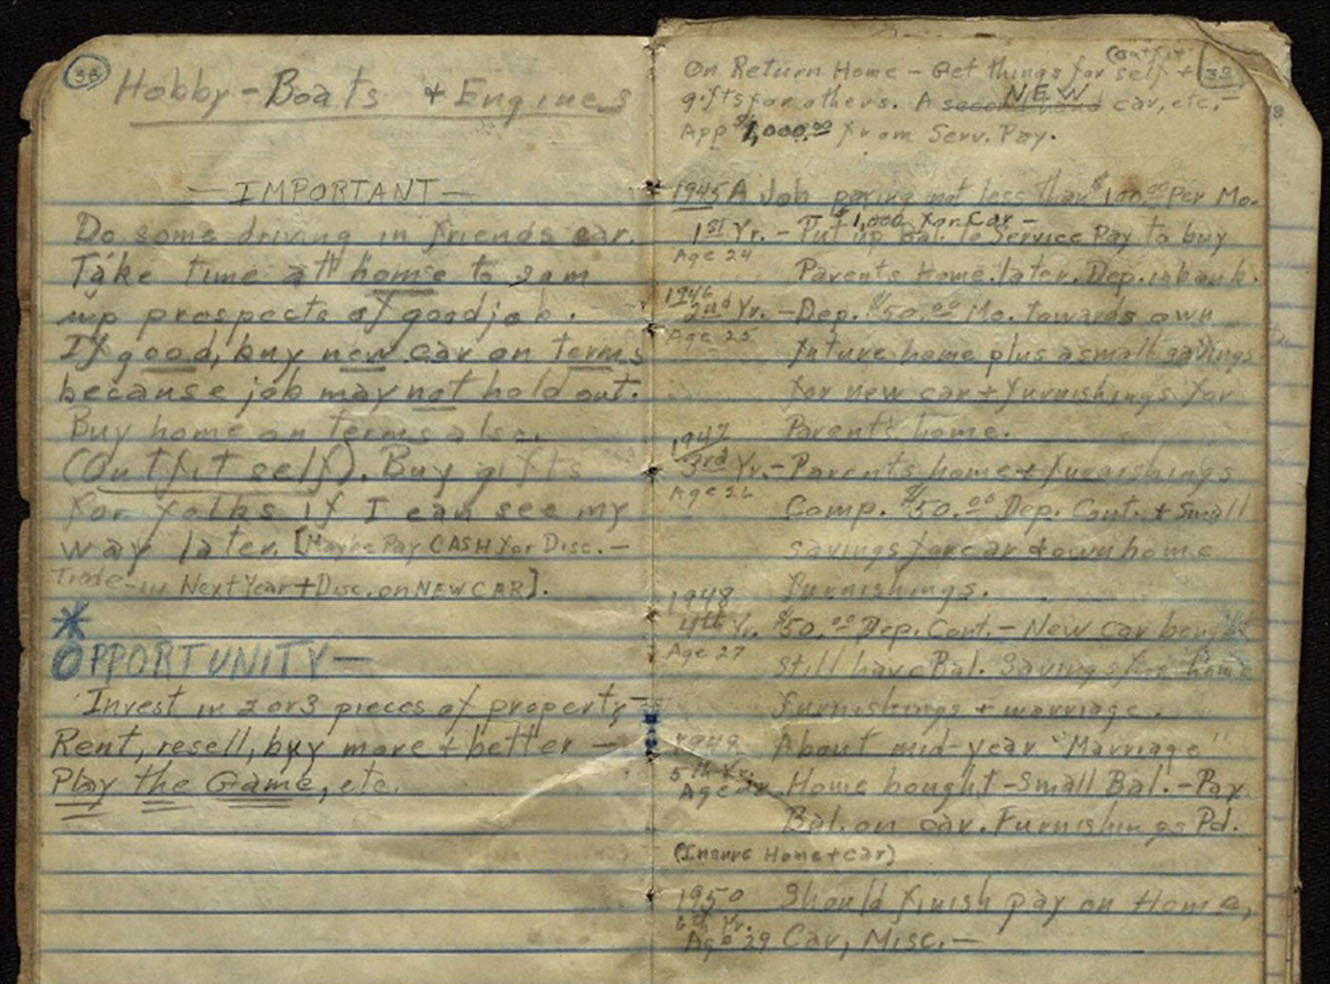 38
Hobby - Boats + Engines
— IMPORTANT —
Do some driving in friends car.
Take time at home to jam
up prospects of good job.
If good, buy new car on terms
because job may not hold out.
Buy home on terms also.
(Outfit self). Buy gifts
for folks if I can see my
way later. [Maybe Pay CASH for Disc. —
Trade-in Next Year + Disc. on NEW CAR].
*
OPPORTUNITY —
Invest in 2 or 3 pieces of property —
Rent, resell, buy more + better —
Play the Game, etc.
39
(outfit)
On Return Home - Get things for self +
gifts for others. A second hand NEW car, etc. —
App $1,000.00 from Serv. Pay.
1945 A Job paying not less than $100.00 Per Mo.
$1,000 for Car —
1st Yr. - Put up Bal. to Service Pay to buy
Age 24
Parents Home. later. Dep. in bank.
1946
2nd Yr. - Dep. $50.00 Mo. towards own
Age 25
future home plus a small savings
for new car + furnishings for
Parent's home.
1947
3rd Yr. - Parents home + furnishings
Age 26
Comp. $50.00 Dep. Cont. + Small
savings for car + own home
furnishings.
1948
4th Yr. $50.00 Dep. Cont. - New car bought
Age 27
still have Bal. Savings for home
furnishings + marriage.
1949 About mid-year "Marriage"
5th Yr.
Age Home bought - Small Bal. - Pay
Bal. on car. Furnishings Pd.
(Insure Home + car)
1950 Should finish pay on Home,
6th Yr.
Age 29 Car, Misc. —